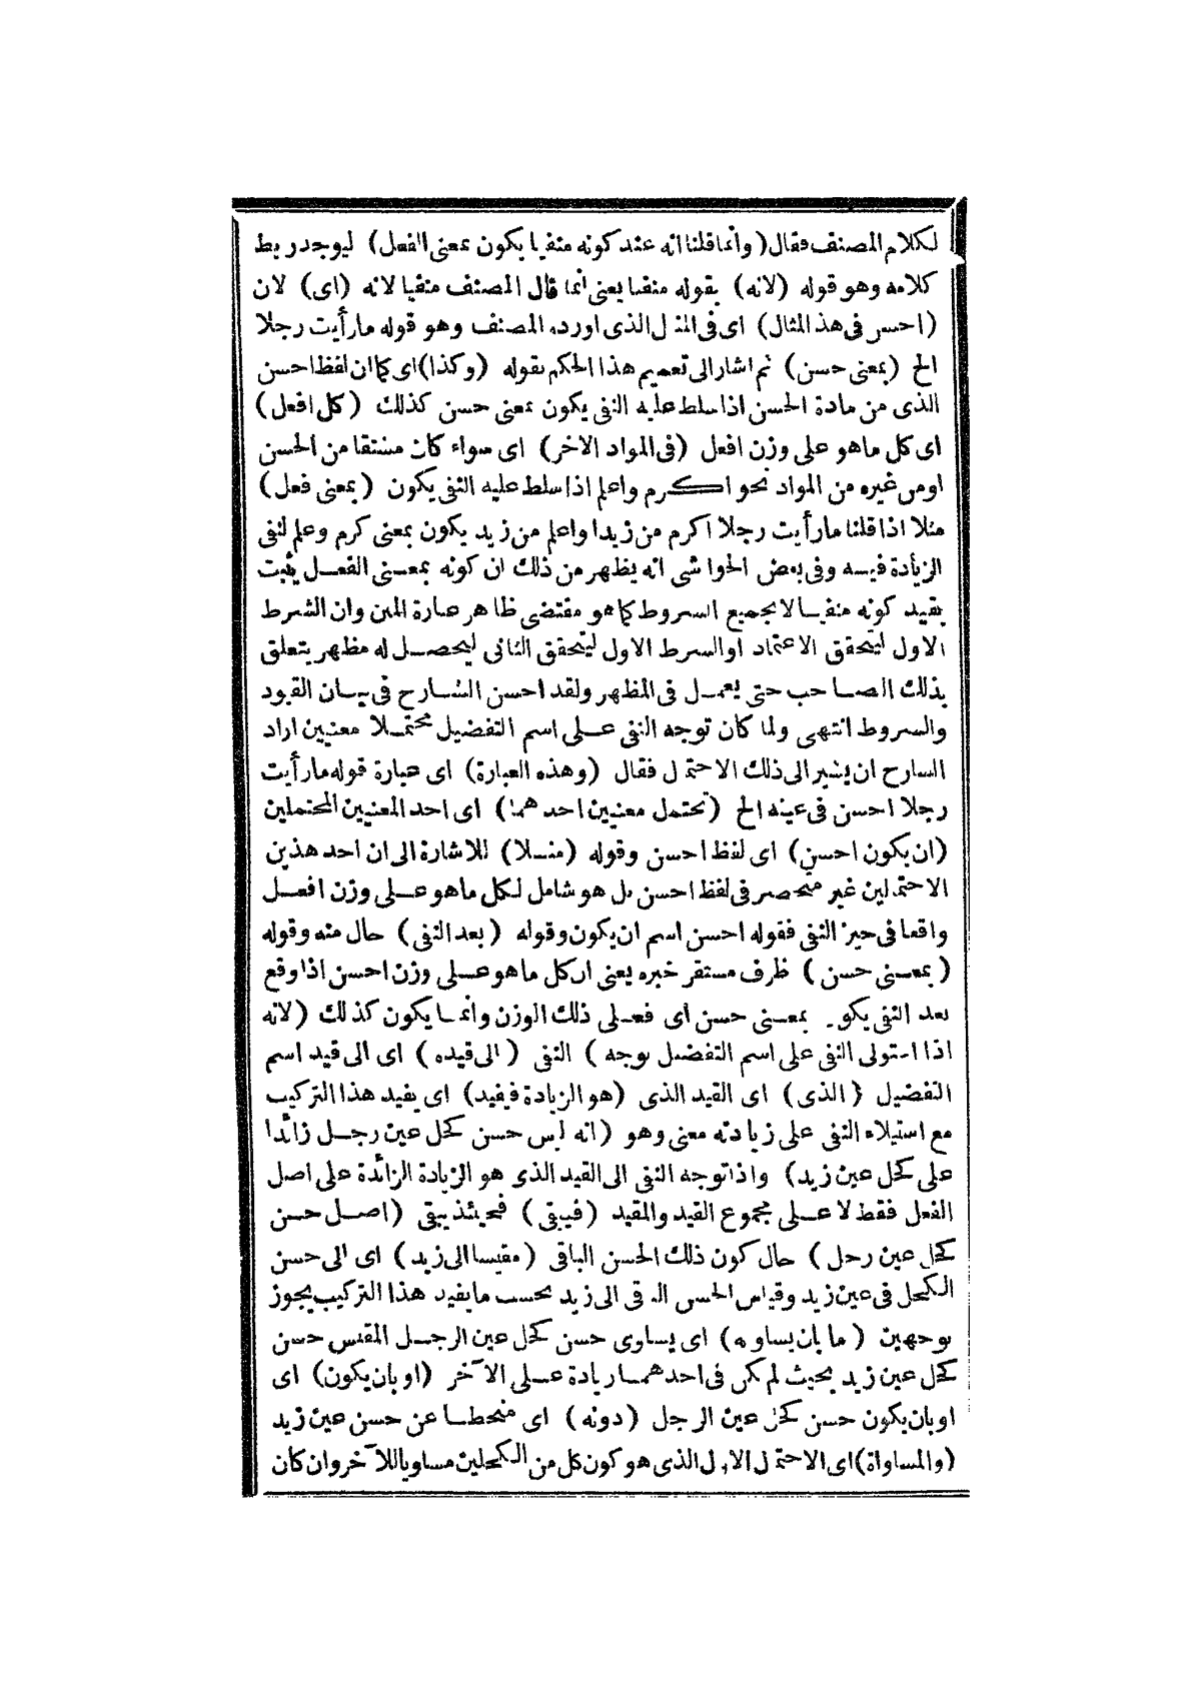 لكلام المصنف فقال (وانما قلنا انه عند كونه منفيا يكون بمعنى الفعل) ليوجد ربط
كلامه وهو قوله (لانه) بقوله منفيا يعنى انما قال المصنف منفيا لانه (اى) لان
(احسن فى هذ المثال) اى فى المثال الذى اورده المصنف وهو قوله ما رأيت رجلا
الخ (بمعنى حسن) ثم اشار الى تعميم هذا الحكم بقوله (وكذا) اى كما ان لفظ احسن
الذى من مادة الحسن اذا سلط عليه النفى يكون بمعنى حسن كذلك (كل افعل)
اى كل ماهو على وزن افعل (فى المواد الاخر) اى سواء كان مشتقا من الحسن
اومن غيره من المواد نحو اكرم واعلم اذا سلط عليه النفى يكون (بمعنى فعل)
مثلا اذا قلنا ما رأيت رجلا اكرم من زيدا واعلم من زيد يكون بمعنى كرم وعلم لنفى
الزيادة فيه وفى بعض الحواشى انه يظهر من ذلك ان كونه بمعنى الفعل يثبت
بقيد كونه منفيا لا بجميع الشروط كما هو مقتضى ظاهر عبارة المتن وان الشرط
الاول ليتحقق الاعتماد او الشرط الاول ليتحقق الثانى ليحصل له مظهر يتعلق
بذلك الصاحب حتى يعمل فى المظهر ولقد احسن الشارح فى بيان القيود
والشروط انتهى ولما كان توجه النفى على اسم التفضيل محتملا معنيين اراد
الشارح ان يشير الى ذلك الاحتمال فقال (وهذه العبارة) اى عبارة قوله ما رأيت
رجلا احسن فى عينه الخ (تحتمل معنيين احدهما) اى احد المعنيين المحتملين
(ان يكون احسن) اى لفظ احسن وقوله (مثلا) للاشارة الى ان احد هذين
الاحتمالين غير منحصر فى لفظ احسن بل هو شامل لكل ماهو على وزن افعل
واقعا فى حيز النفى فقوله احسن اسم ان يكون وقوله (بعد النفى) حال منه وقوله
(بمعنى حسن) ظرف مستقر خبره يعنى ان كل ماهو على وزن احسن اذا وقع
بعد النفى يكون بمعنى حسن اى فعلى ذلك الوزن وانما يكون كذلك (لانه
اذا استولى النفى على اسم التفضيل توجه) النفى (الى قيده) اى الى قيد اسم
التفضيل (الذى) اى القيد الذى (هو الزيادة فيفيد) اى يفيد هذا التركيب
مع استيلاء النفى على زيادته معنى وهو (انه ليس حسن كحل عين رجل زائدا
على كحل عين زيد) واذا توجه النفى الى القيد الذى هو الزيادة الزائدة على اصل
الفعل فقط لا على مجموع القيد والمقيد (فيبقى) فحينئذ يبقى (اصل حسن
كحل عين رجل) حال كون ذلك الحسن الباقى (مقيسا الى زيد) اى الى حسن
الكحل فى عين زيد وقياس الحسن الباقى الى زيد بحسب ما يفيد هذا التركيب يجوز
بوجهين (اما بان يساويه) اى يساوى حسن كحل عين الرجل المقيس حسن
كحل عين زيد بحيث لم يكن فى احدهما زيادة على الآخر (او بان يكون) اى
او بان يكون حسن كحل عين الرجل (دونه) اى منحطا عن حسن عين زيد
(والمساواة) اى الاحتمال الاول الذى هو كون كل من الكحلين مساويا للآخر وان كان